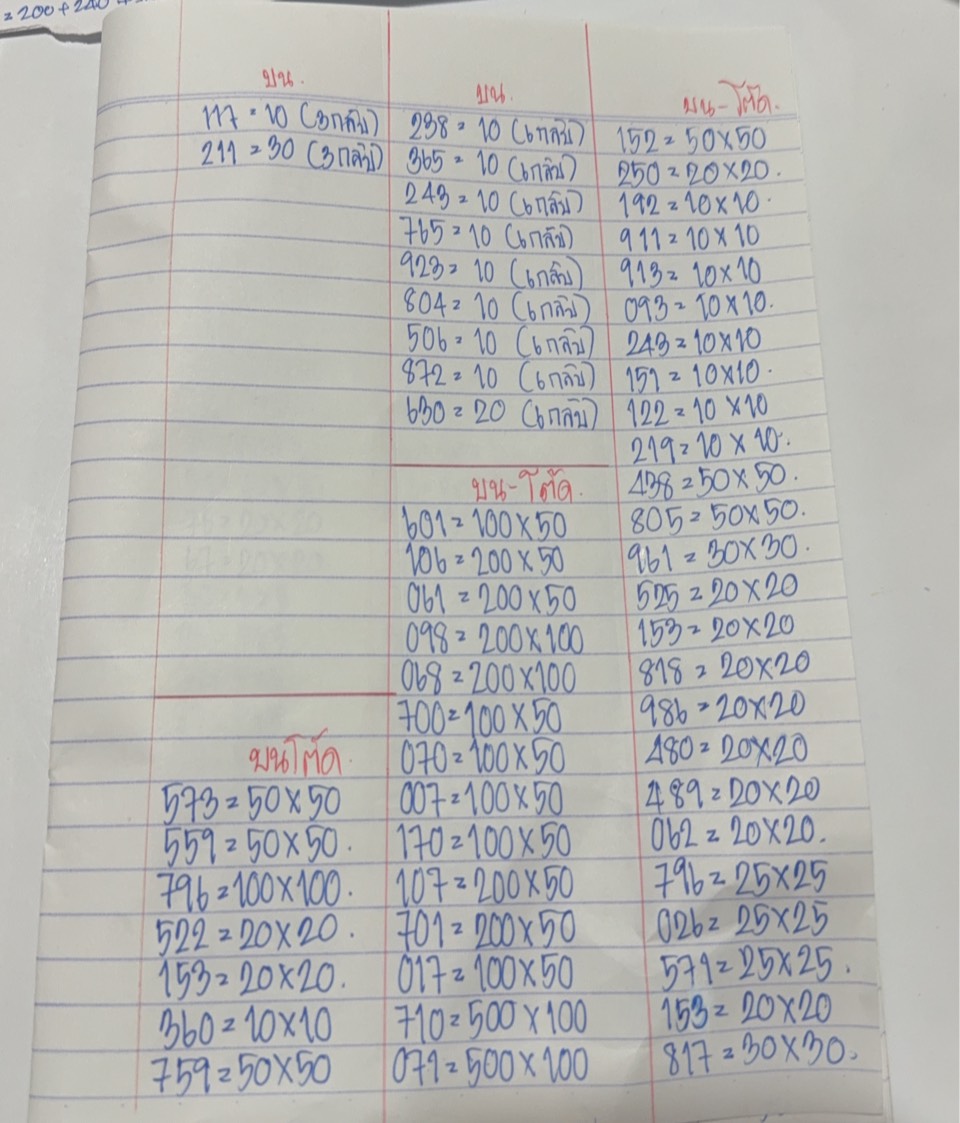 = 200 + 240
บน.
117 = 10 (3กลับ)
211 = 30 (3กลับ)
บนโต๊ด
573 = 50 X 50
559 = 50 X 50.
796 = 100 X 100.
522 = 20 X 20.
153 = 20 X 20.
360 = 10 X 10
759 = 50 X 50
บน.
238 = 10 (6กลับ)
365 = 10 (6กลับ)
243 = 10 (6กลับ)
765 = 10 (6กลับ)
923 = 10 (6กลับ)
804 = 10 (6กลับ)
506 = 10 (6กลับ)
872 = 10 (6กลับ)
630 = 20 (6กลับ)
บน-โต๊ด.
601 = 100 X 50
106 = 200 X 50
061 = 200 X 50
098 = 200 X 100
068 = 200 X 100
700 = 100 X 50
070 = 100 X 50
007 = 100 X 50
170 = 100 X 50
107 = 200 X 50
701 = 200 X 50
017 = 100 X 50
710 = 500 X 100
071 = 500 X 100
บน-โต๊ด.
152 = 50 X 50
250 = 20 X 20.
192 = 10 X 10.
911 = 10 X 10
913 = 10 X 10
093 = 10 X 10.
243 = 10 X 10
151 = 10 X 10.
122 = 10 X 10
219 = 10 X 10.
438 = 50 X 50.
805 = 50 X 50.
961 = 30 X 30.
525 = 20 X 20
153 = 20 X 20
818 = 20 X 20
986 = 20 X 20
480 = 20 X 20
489 = 20 X 20
062 = 20 X 20.
796 = 25 X 25
026 = 25 X 25
571 = 25 X 25.
153 = 20 X 20
817 = 30 X 30.